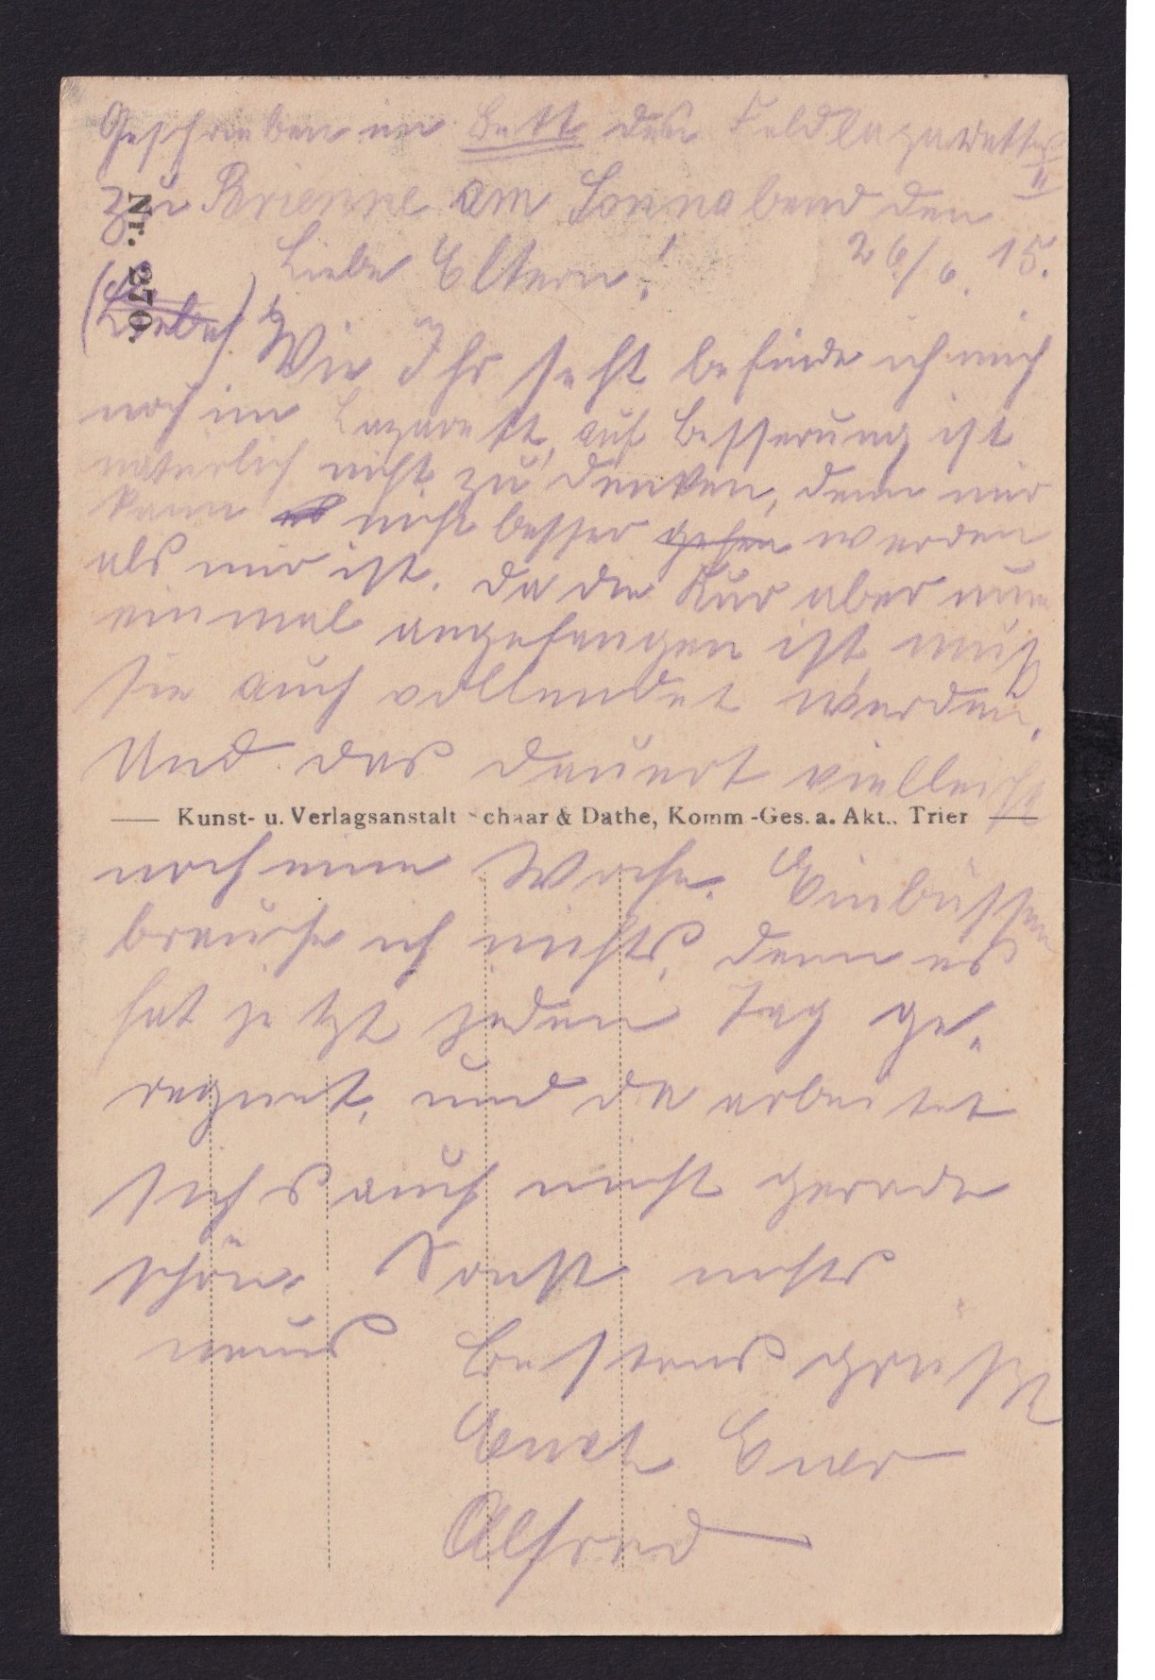 Geschrieben im Bett des Feldlazarettes II
zu Brienne am Sonnabend den
26/6. 15.
Liebe Eltern!
(Liebe)
Wie Ihr seht befinde ich mich
noch im Lazarett, auf Besserung ist
natürlich nicht zu denken, denn mir
kann es nicht besser gehen werden
als mir ist. Da die Kur aber nun
einmal angefangen ist, muß
sie auch vollendet werden.
Und das dauert vielleicht
Kunst- u. Verlagsanstalt Schaar & Dathe, Komm-Ges. a. Akt., Trier
noch eine Woche. Einbüssen
brauche ich nichts, denn es
hat jetzt jeden Tag ge-
regnet, und da arbeitet
sichs auch nicht gerade
schön. Sonst nichts
neues
Bestens grüßt
Euch Euer
Alfred
Nr. 270.